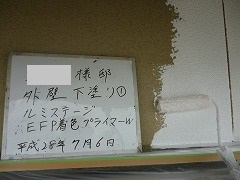 様邸
外壁 下塗り①
ルミステージ
EFP着色プライマーW
平成28年7月6日